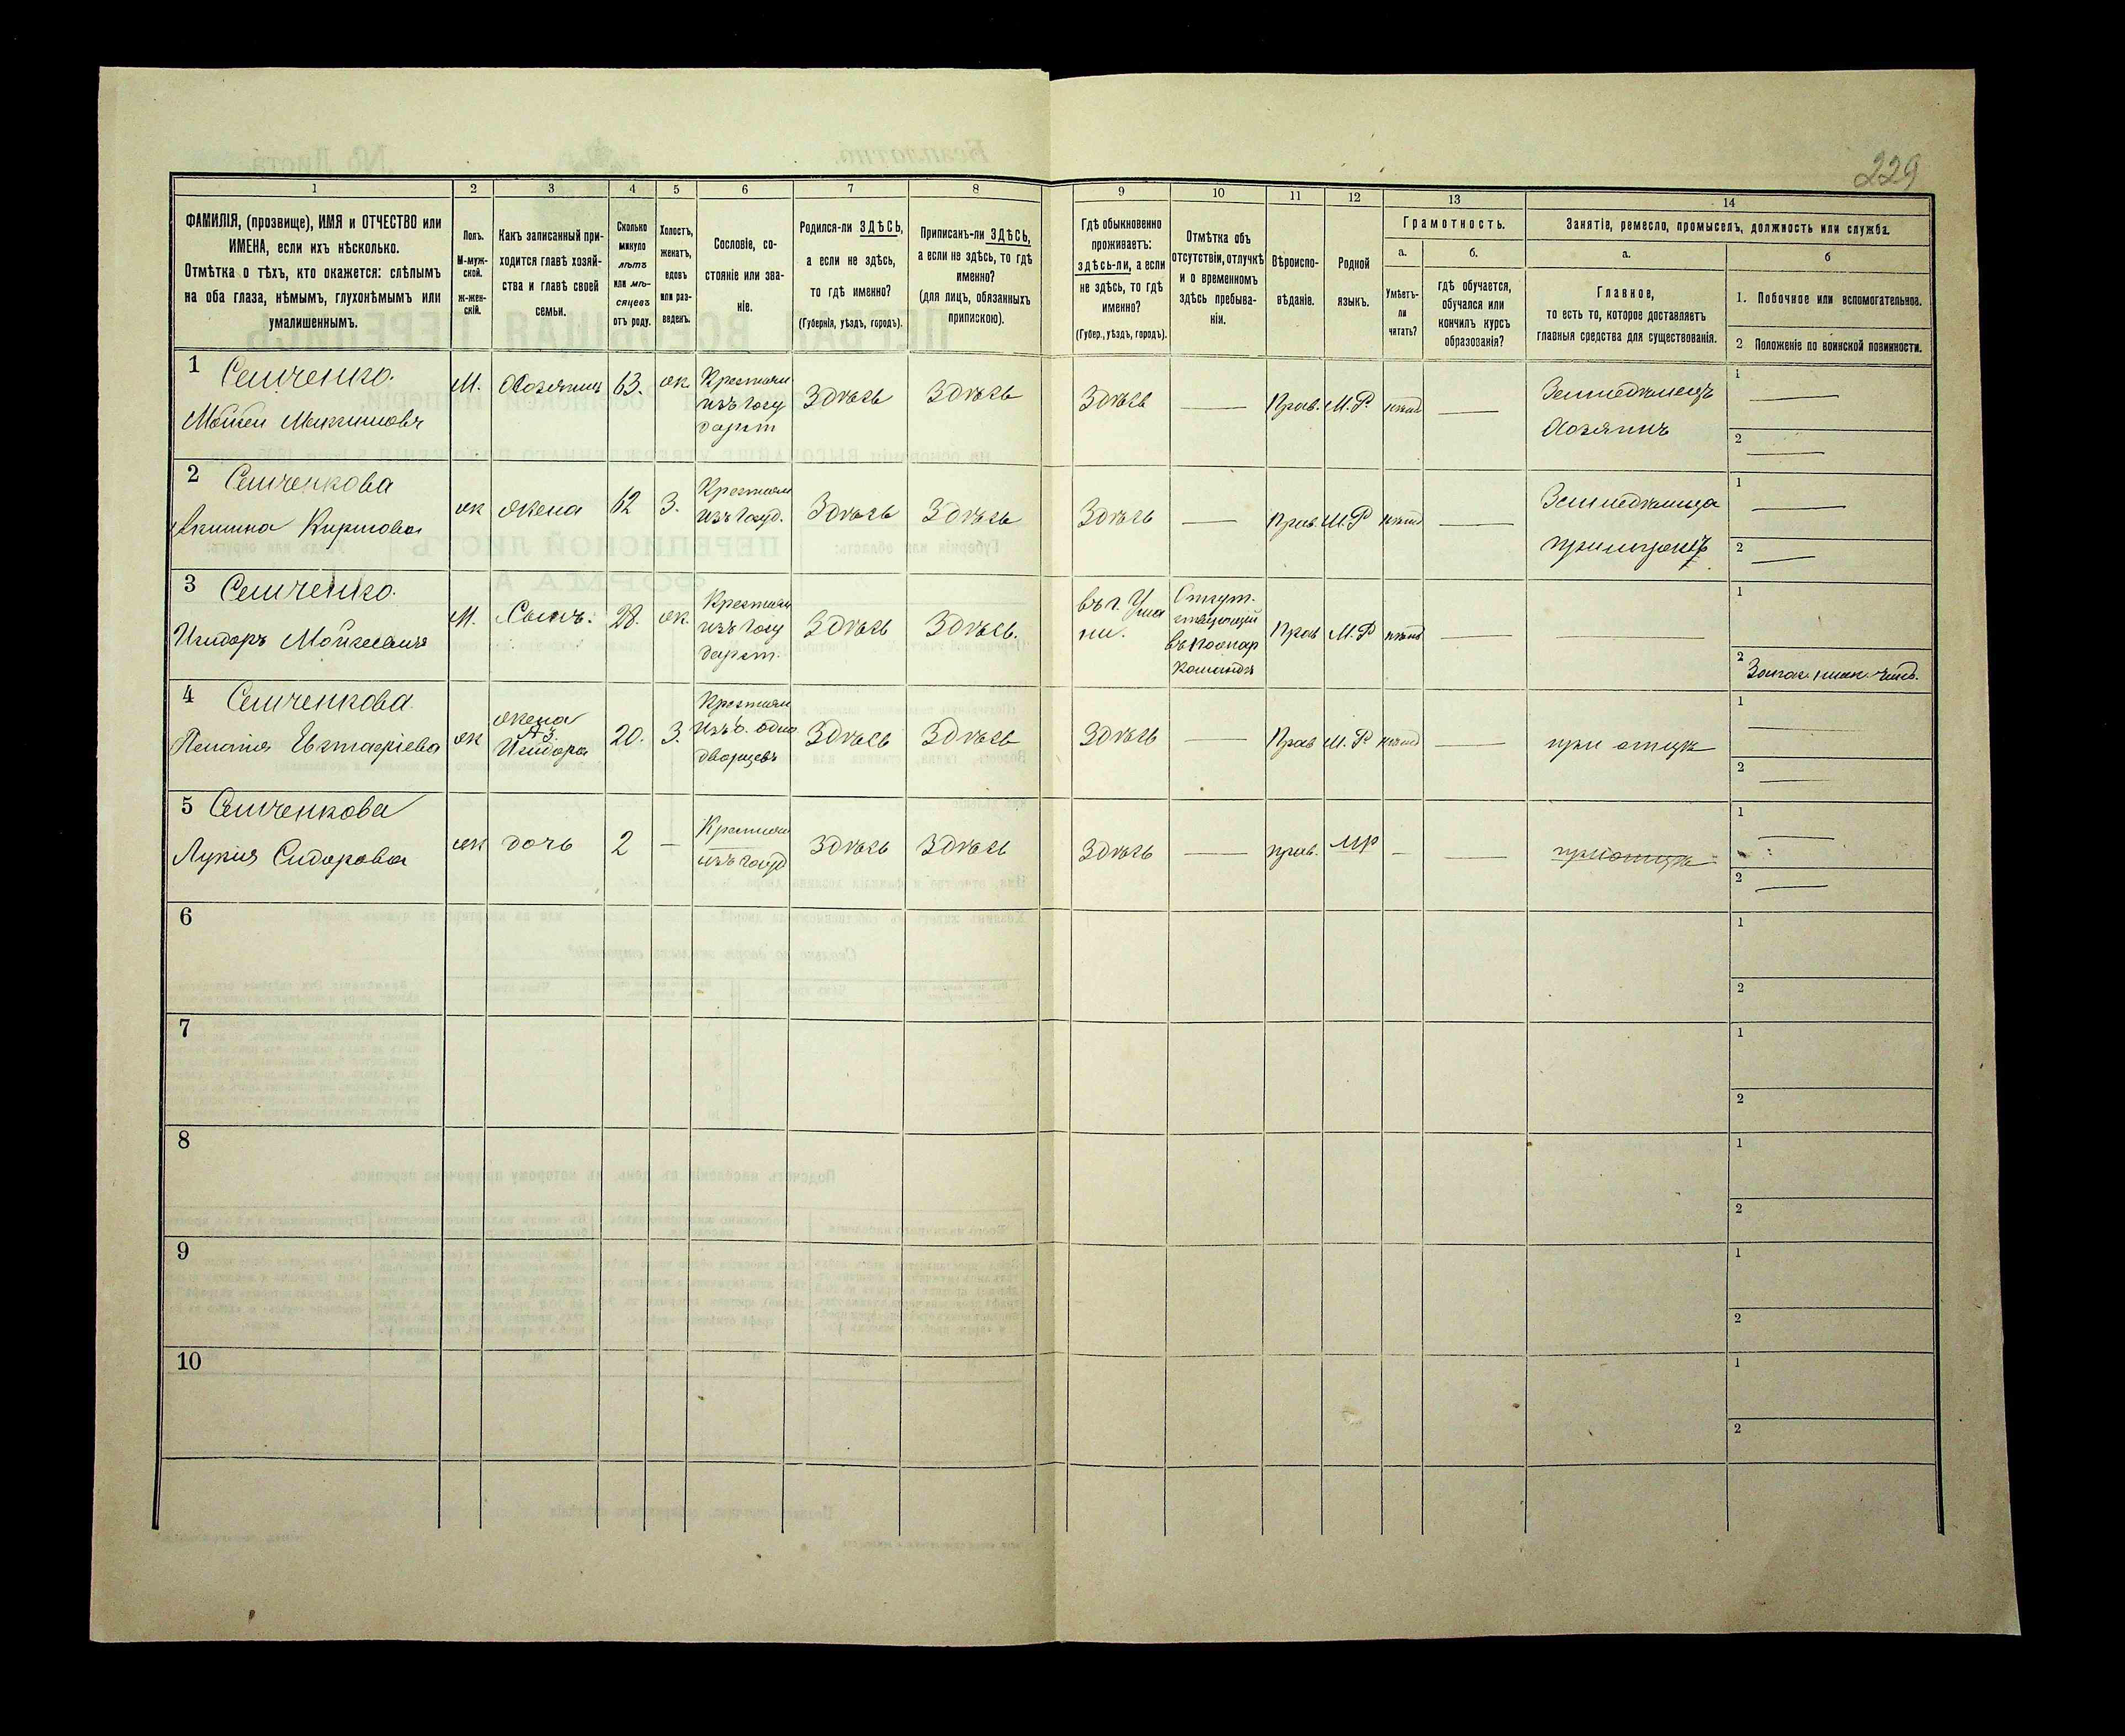 229
1 2 3 4 5 6 7 8 9 10 11 12 13 14
ФАМИЛІЯ, (прозвище), ИМЯ и ОТЧЕСТВО или
ИМЕНА, если ихъ нѣсколько.
Отмѣтка о тѣхъ, кто окажется: слѣпымъ
на оба глаза, нѣмымъ, глухонѣмымъ или
умалишеннымъ.
Полъ.
М-муж-
ской.
ж-жен-
скій.
Какъ записанный при-
ходится главѣ хозяй-
ства и главѣ своей
семьи.
Сколько
минуло
лѣтъ
или мѣ-
сяцевъ
отъ роду.
Холостъ,
женатъ,
вдовъ
или раз-
веденъ.
Сословіе, со-
стояніе или зва-
ніе.
Родился-ли ЗДѢСЬ,
а если не здѣсь,
то гдѣ именно?
(Губернія, уѣздъ, городъ).
Приписанъ-ли ЗДѢСЬ,
а если не здѣсь, то гдѣ
именно?
(для лицъ, обязанныхъ
припискою).
Гдѣ обыкновенно
проживаетъ:
здѣсь-ли, а если
не здѣсь, то гдѣ
именно?
(Губер., уѣздъ, городъ).
Отмѣтка объ
отсутствіи, отлучкѣ
и о временномъ
здѣсь пребыва-
ніи.
Вѣроиспо-
вѣданіе.
Родной
языкъ.
Грамотность.
а.
Умѣетъ-
ли
читать?
б.
гдѣ обучается,
обучался или
кончилъ курсъ
образованія?
Занятіе, ремесло, промыселъ, должность или служба.
а.
Главное,
то есть то, которое доставляетъ
главныя средства для существованія.
б
1. Побочное или вспомогательное.
2 Положеніе по воинской повинности.
1 Семченко.
Мойсей Максимовъ
М.
Хозяинъ
63.
ж.
Крестьян
изъ Госу
дарст
Здѣсь
Здѣсь
Здѣсь
Прав.
М.Р.
нѣтъ
Земледѣлецъ
Хозяинъ
1
2
2 Семченкова
Кирилова
ж
жена
62
З.
Крестьян
изъ Госуд.
Здѣсь
Здѣсь
Здѣсь
Прав.
М.Р
нѣтъ
Земледѣлица
1
2
3 Семченко.
Исидоръ Мойсеевичъ
М.
Сынъ.
28.
ж.
Крестьян
изъ Госу
дарст.
Здѣсь
Здѣсь.
въ г. Ума
ни.
Отсут.
ствующій
въ Пожар
командѣ
Прав
М.Р
нѣтъ
1
2 Запас. ниж. чинъ.
4 Семченкова.
Пелагія Евстафіева
ж
жена
№ 3.
Исидора
20.
З.
Крестьян
изъ б. одно
дворцевъ
Здѣсь
Здѣсь
Здѣсь
Прав
М.Р.
нѣтъ
при отцѣ
1
2
5 Семченкова
Лукія Сидорова
ж
дочь
2
Крестьян
изъ госуд
Здѣсь
Здѣсь
Здѣсь
прав.
мр
при отцѣ
1
2
6
1
2
7
1
2
8
1
2
9
1
2
10
1
2